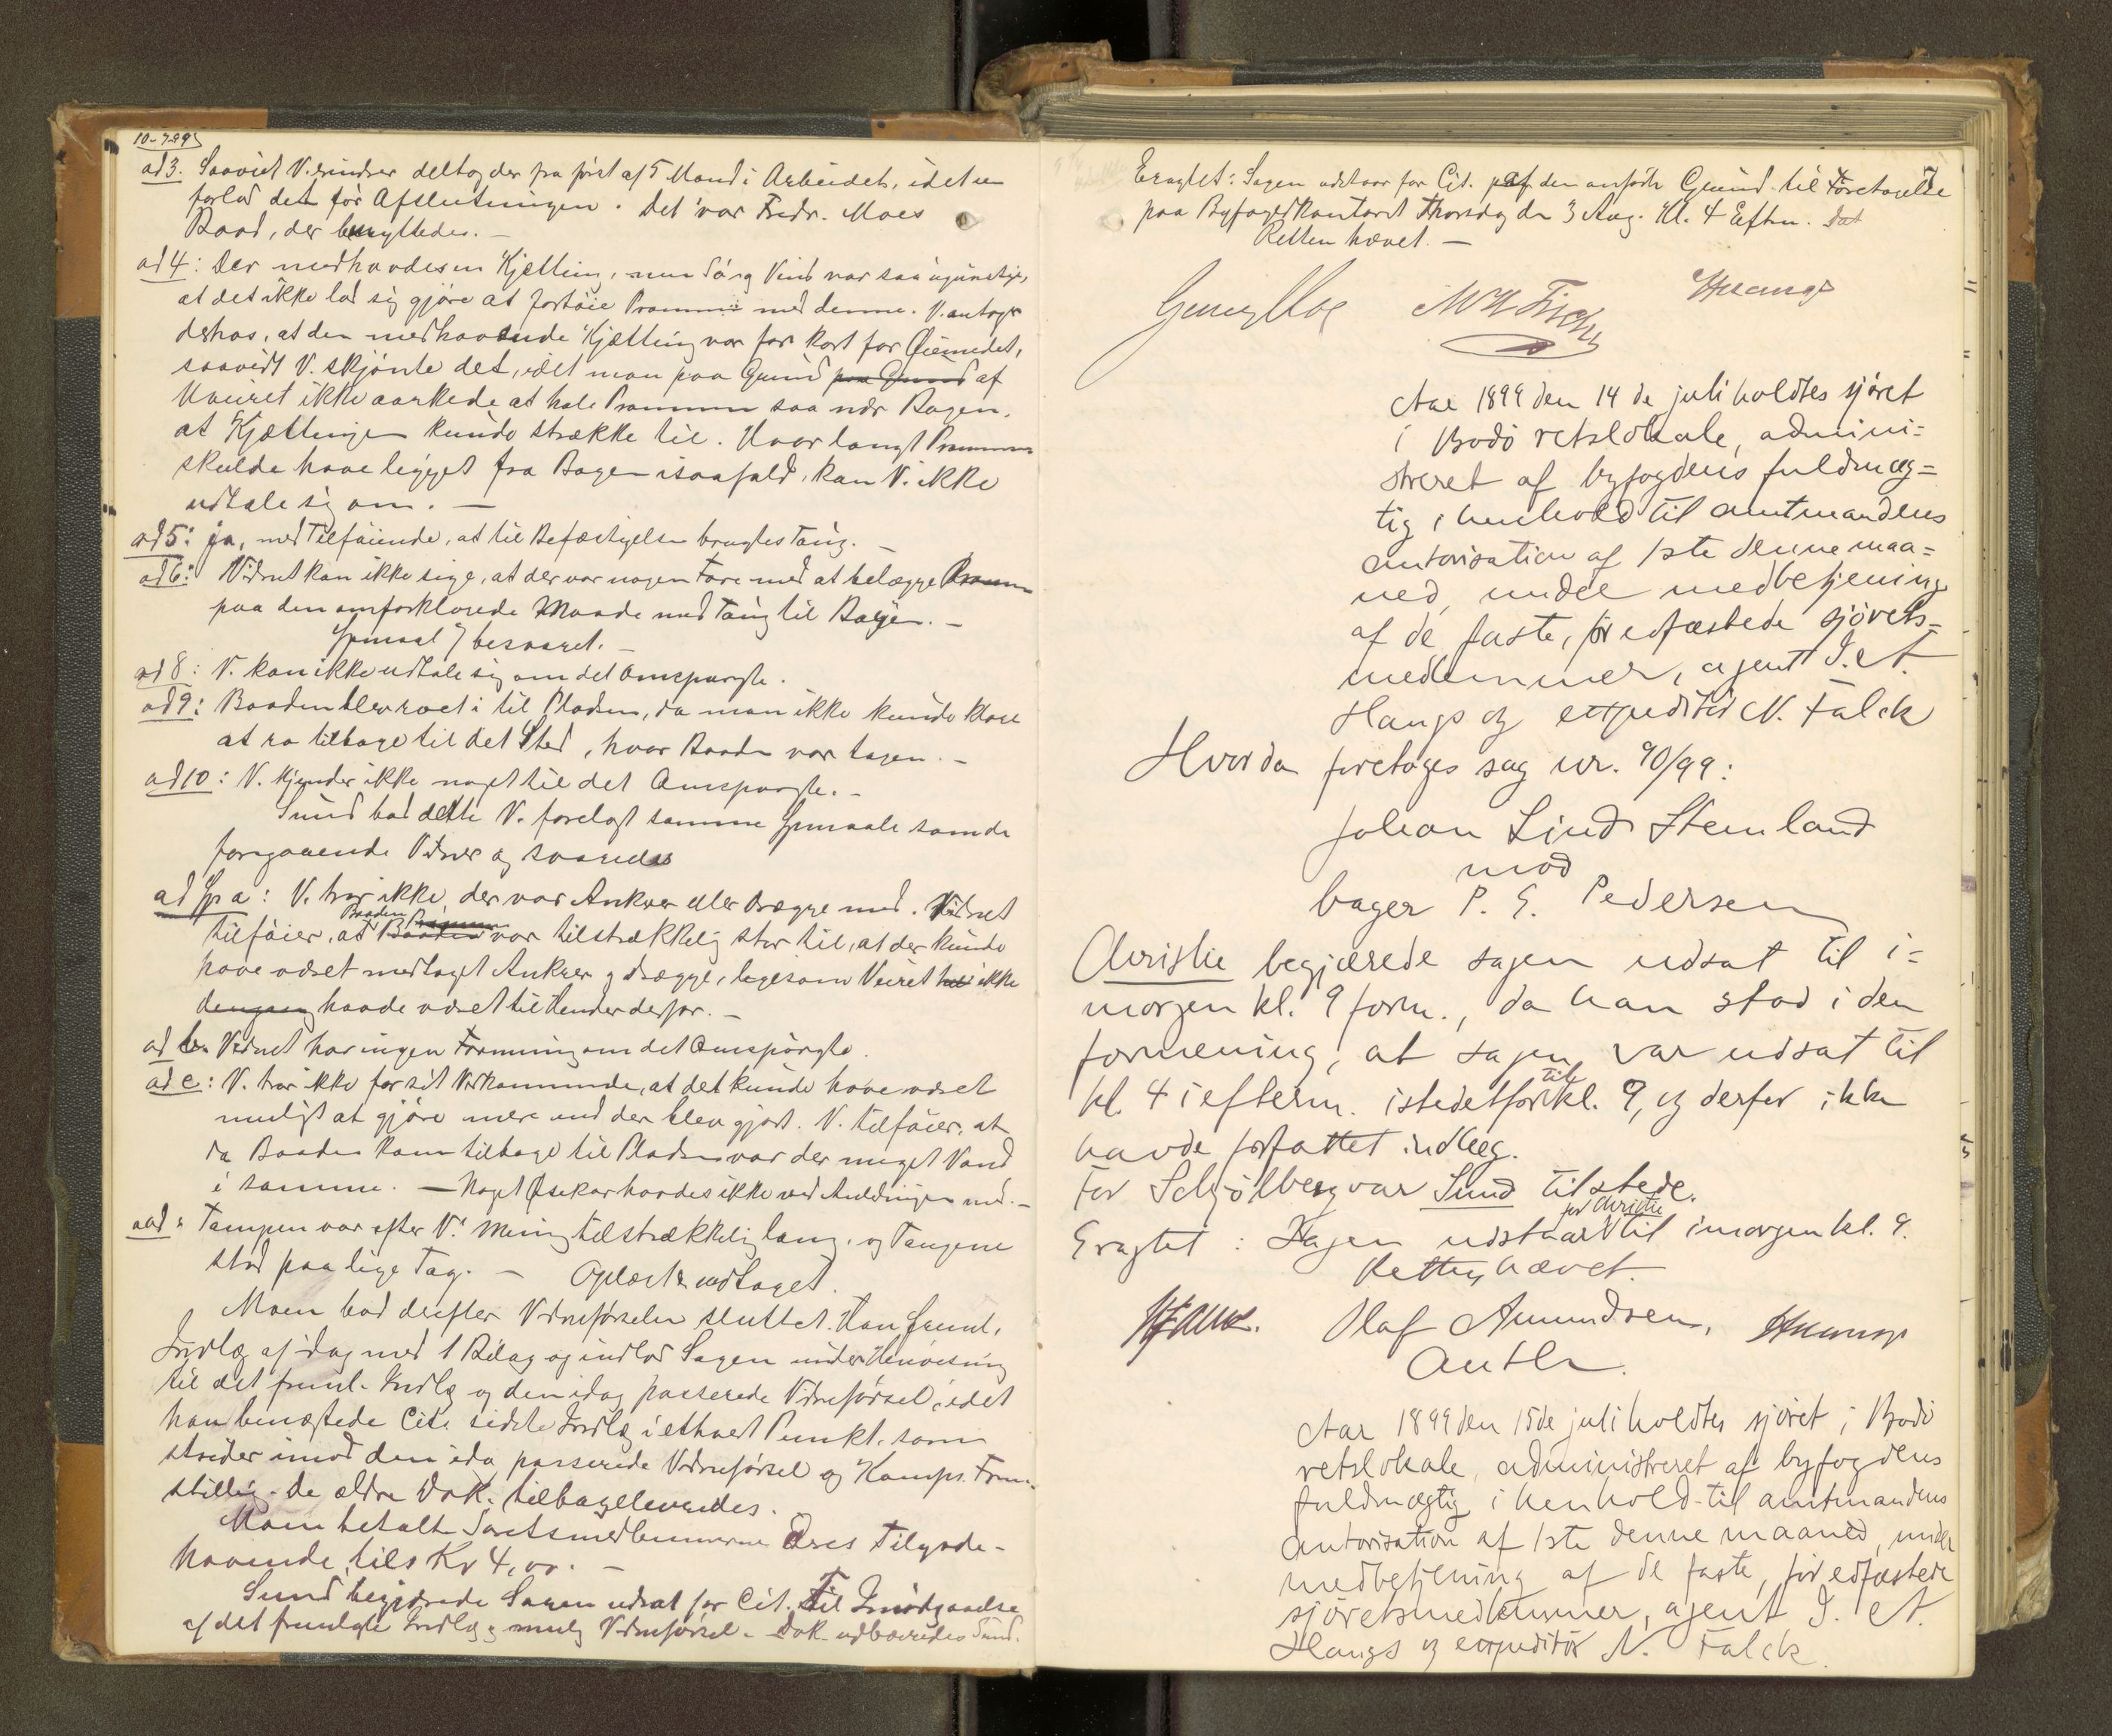 10-7-99
ad 3. Saavidt V. erindrer deltog der fra først af 5 Mand i Arbeidet, idet en
forlod det før Afslutningen. Det var Fredr. Moes
Baad, der benyttedes. —
ad 4: Der medhavdes en Kjetting, men Sø og Vind var saa ugunstige,
at det ikke lod sig gjøre at fortøie Prammen med denne. V. antager
derhos, at den medhavende Kjætting var for kort for Øiemedet,
saavidt V. skjønte det, idet man paa Grund paa Grund af
Veiret ikke aarkede at hale Prammen saa nær Bøgen,
at Kjættingen kunde strække til. Hvor langt Prammen
skulde have ligget fra Bøgen isaafald, kan V. ikke
udtale sig om. —
ad 5: ja, med Tilføiende, at til Befæstigelsen brugtes Taug. —
ad 6: Vidnet kan ikke sige, at der var nogen Fare med at belægge Prammen
paa den omforklarede Maade med Taug til Bøgen. —
Spmaal 7 besvaret. —
ad 8: V. kan ikke udtale sig om det Omspurgte.
ad 9: Baaden blev roet i til Pladsen, da man ikke kunde klare
at ro tilbage til det Sted, hvor Baaden var tagen. —
ad 10: V. kjender ikke noget til det Omspurgte. —
Sund bad dette V. forelagt samme Spmaale som de
foregaaende Vidner og svaredes
ad Sp a: V. tror ikke, der var Ankere eller Drægge med. Vidnet
tilføier, at Baaden Baaden Prammen var tilstrækkelig stor til, at der kunde
have været medtaget Ankere og Drægge, ligesom Veiret ikke
dengang havde været til Hinder derfor. —
ad b. Vidnet har ingen Formening om det Omspurgte.
ad c: V. tror ikke for sit Vedkommende, at det kunde have været
muligt at gjøre mere end der blev gjort. V. tilføier, at
da Baaden kom tilbage til Pladsen var der meget Vand
i samme. — Noget Øsekar havdes ikke ved Anledningen med. —
ad d: Tampen var efter V.s Mening tilstrækkelig lang, og Taugene
stod paa lige Tag. — Oplæst & vedtaget.
Moen bad derefter Vidneførselen sluttet. Han freml.
Indlæg af idag med 1 Bilag og indlod Sagen under Henvisning
til det freml. Indlæg og den idag passerede Vidneførsel, idet
han benægtede Cit.s sidste Indlæg i ethvert Punkt, som
strider imod den idag passerede Vidneførsel og Kamps Frem-
stilling. De ældre Dok. tilbageleveredes.
Moen betalte Søretsmedlemmerne deres Tilgode-
havende, tils Kr 4,00. —
Sund begjærede Sagen udsat for Cit. til Imødgaaelse
af det fremlagte Indlæg og mulig Vidneførsel. Dok. udbeværedes Sund.
Eragtet: Sagen udstaar for Cit. paa den anførte Grund til Foretagelse
paa Byfogedkontoret Thorsdag den 3 Aug. Kl. 4 Eftm.
Retten hævet. —
Georg Moe M H Fischer Haangs
Aar 1899 den 14de juli holdtes sjøret
i Bodø retslokale, admini=
streret af byfogdens fuldmæg=
tig i henhold til amtmandens
autorisation af 1ste denne maa=
ned, under medbetjening
af de faste, før edfæstede sjørets=
medlemmer, agent I. A.
Haugs og expeditør N. Falck
Hvorda foretoges sag nr. 90/99:
Johan Lind Stemland
mod
bager P. G. Pedersen
Christie begjærede sagen udsat til i=
morgen kl. 9 form., da han stod i den
formening, at sagen var udsat til
kl. 4 i efterm. istedetfor til kl. 9, og derfor ikke
havde forfattet indlæg.
For Schjølberg var Sund tilstede.
Eragtet: Sagen udstaar for Christie til imorgen kl. 9.
Retten hævet.
Olaf Amundsen, Haangs
Auth.
Aar 1899 den 15de juli holdtes sjøret i Bodø
retslokale, administreret af byfogdens
fuldmægtig i henhold til amtmandens
autorisation af 1ste denne maaned, under
medbetjening af de faste, før edfæstede
sjøretsmedlemmer, agent I. A.
Haugs og expeditør N. Falck.